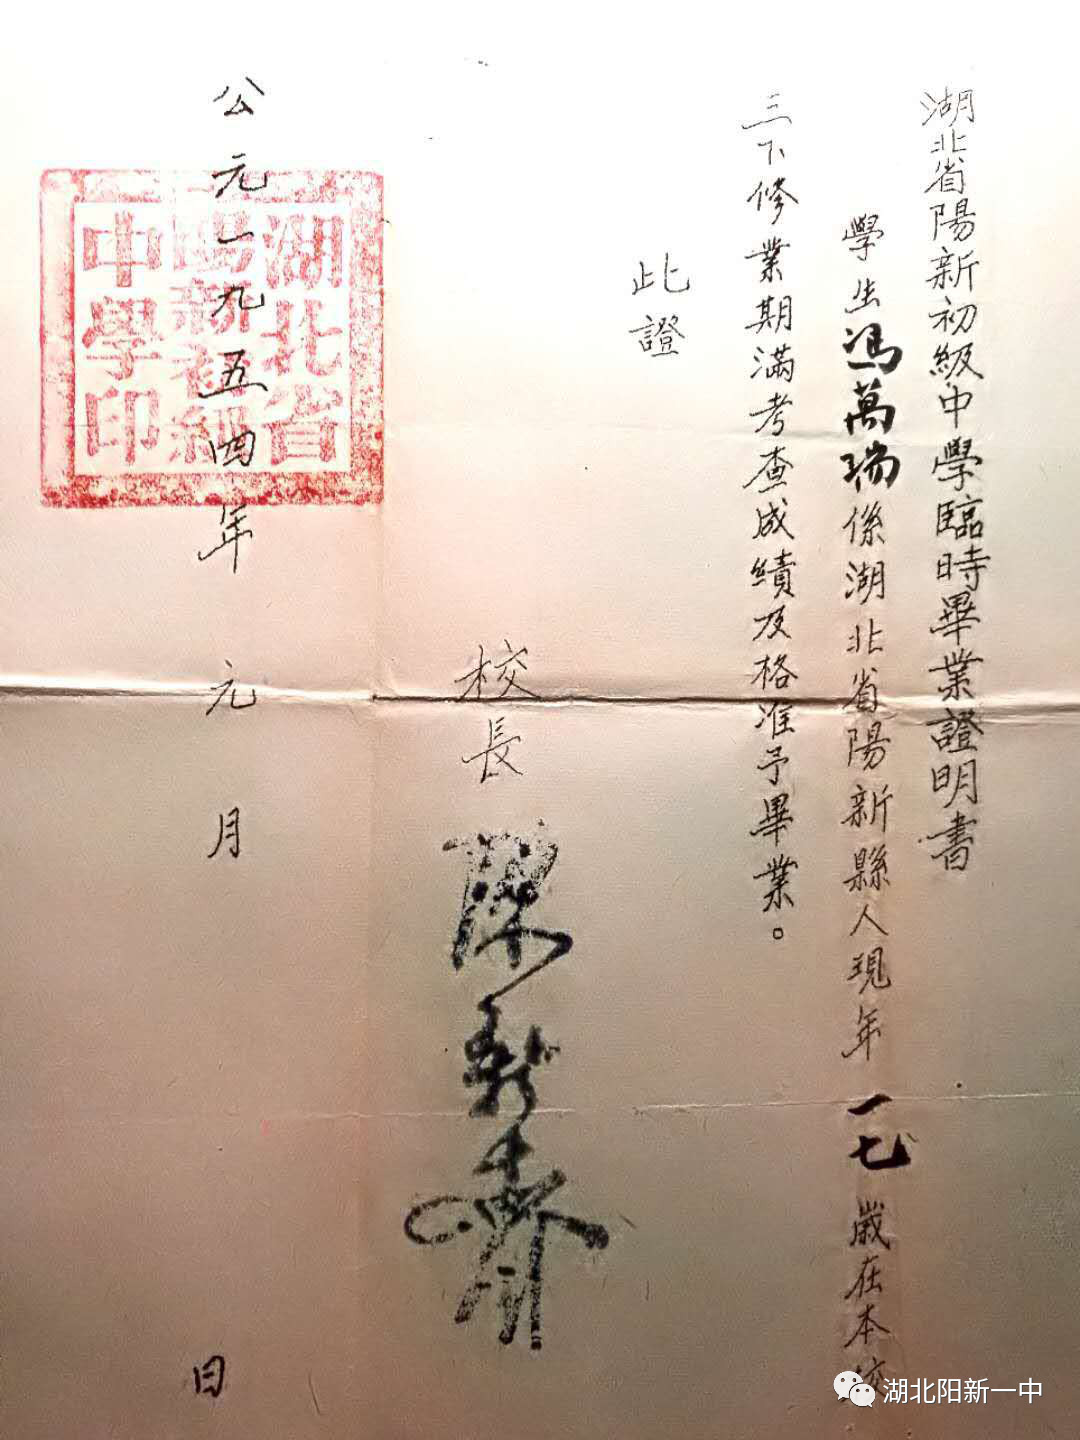 湖北省陽新初級中學臨時畢業證明書
學生馮萬瑞係湖北省陽新縣人現年一七歲在本校
三下修業期滿考查成績及格准予畢業。
此證
校長
公元一九五四年元月 日
湖北省
陽新初級
中學印
湖北阳新一中